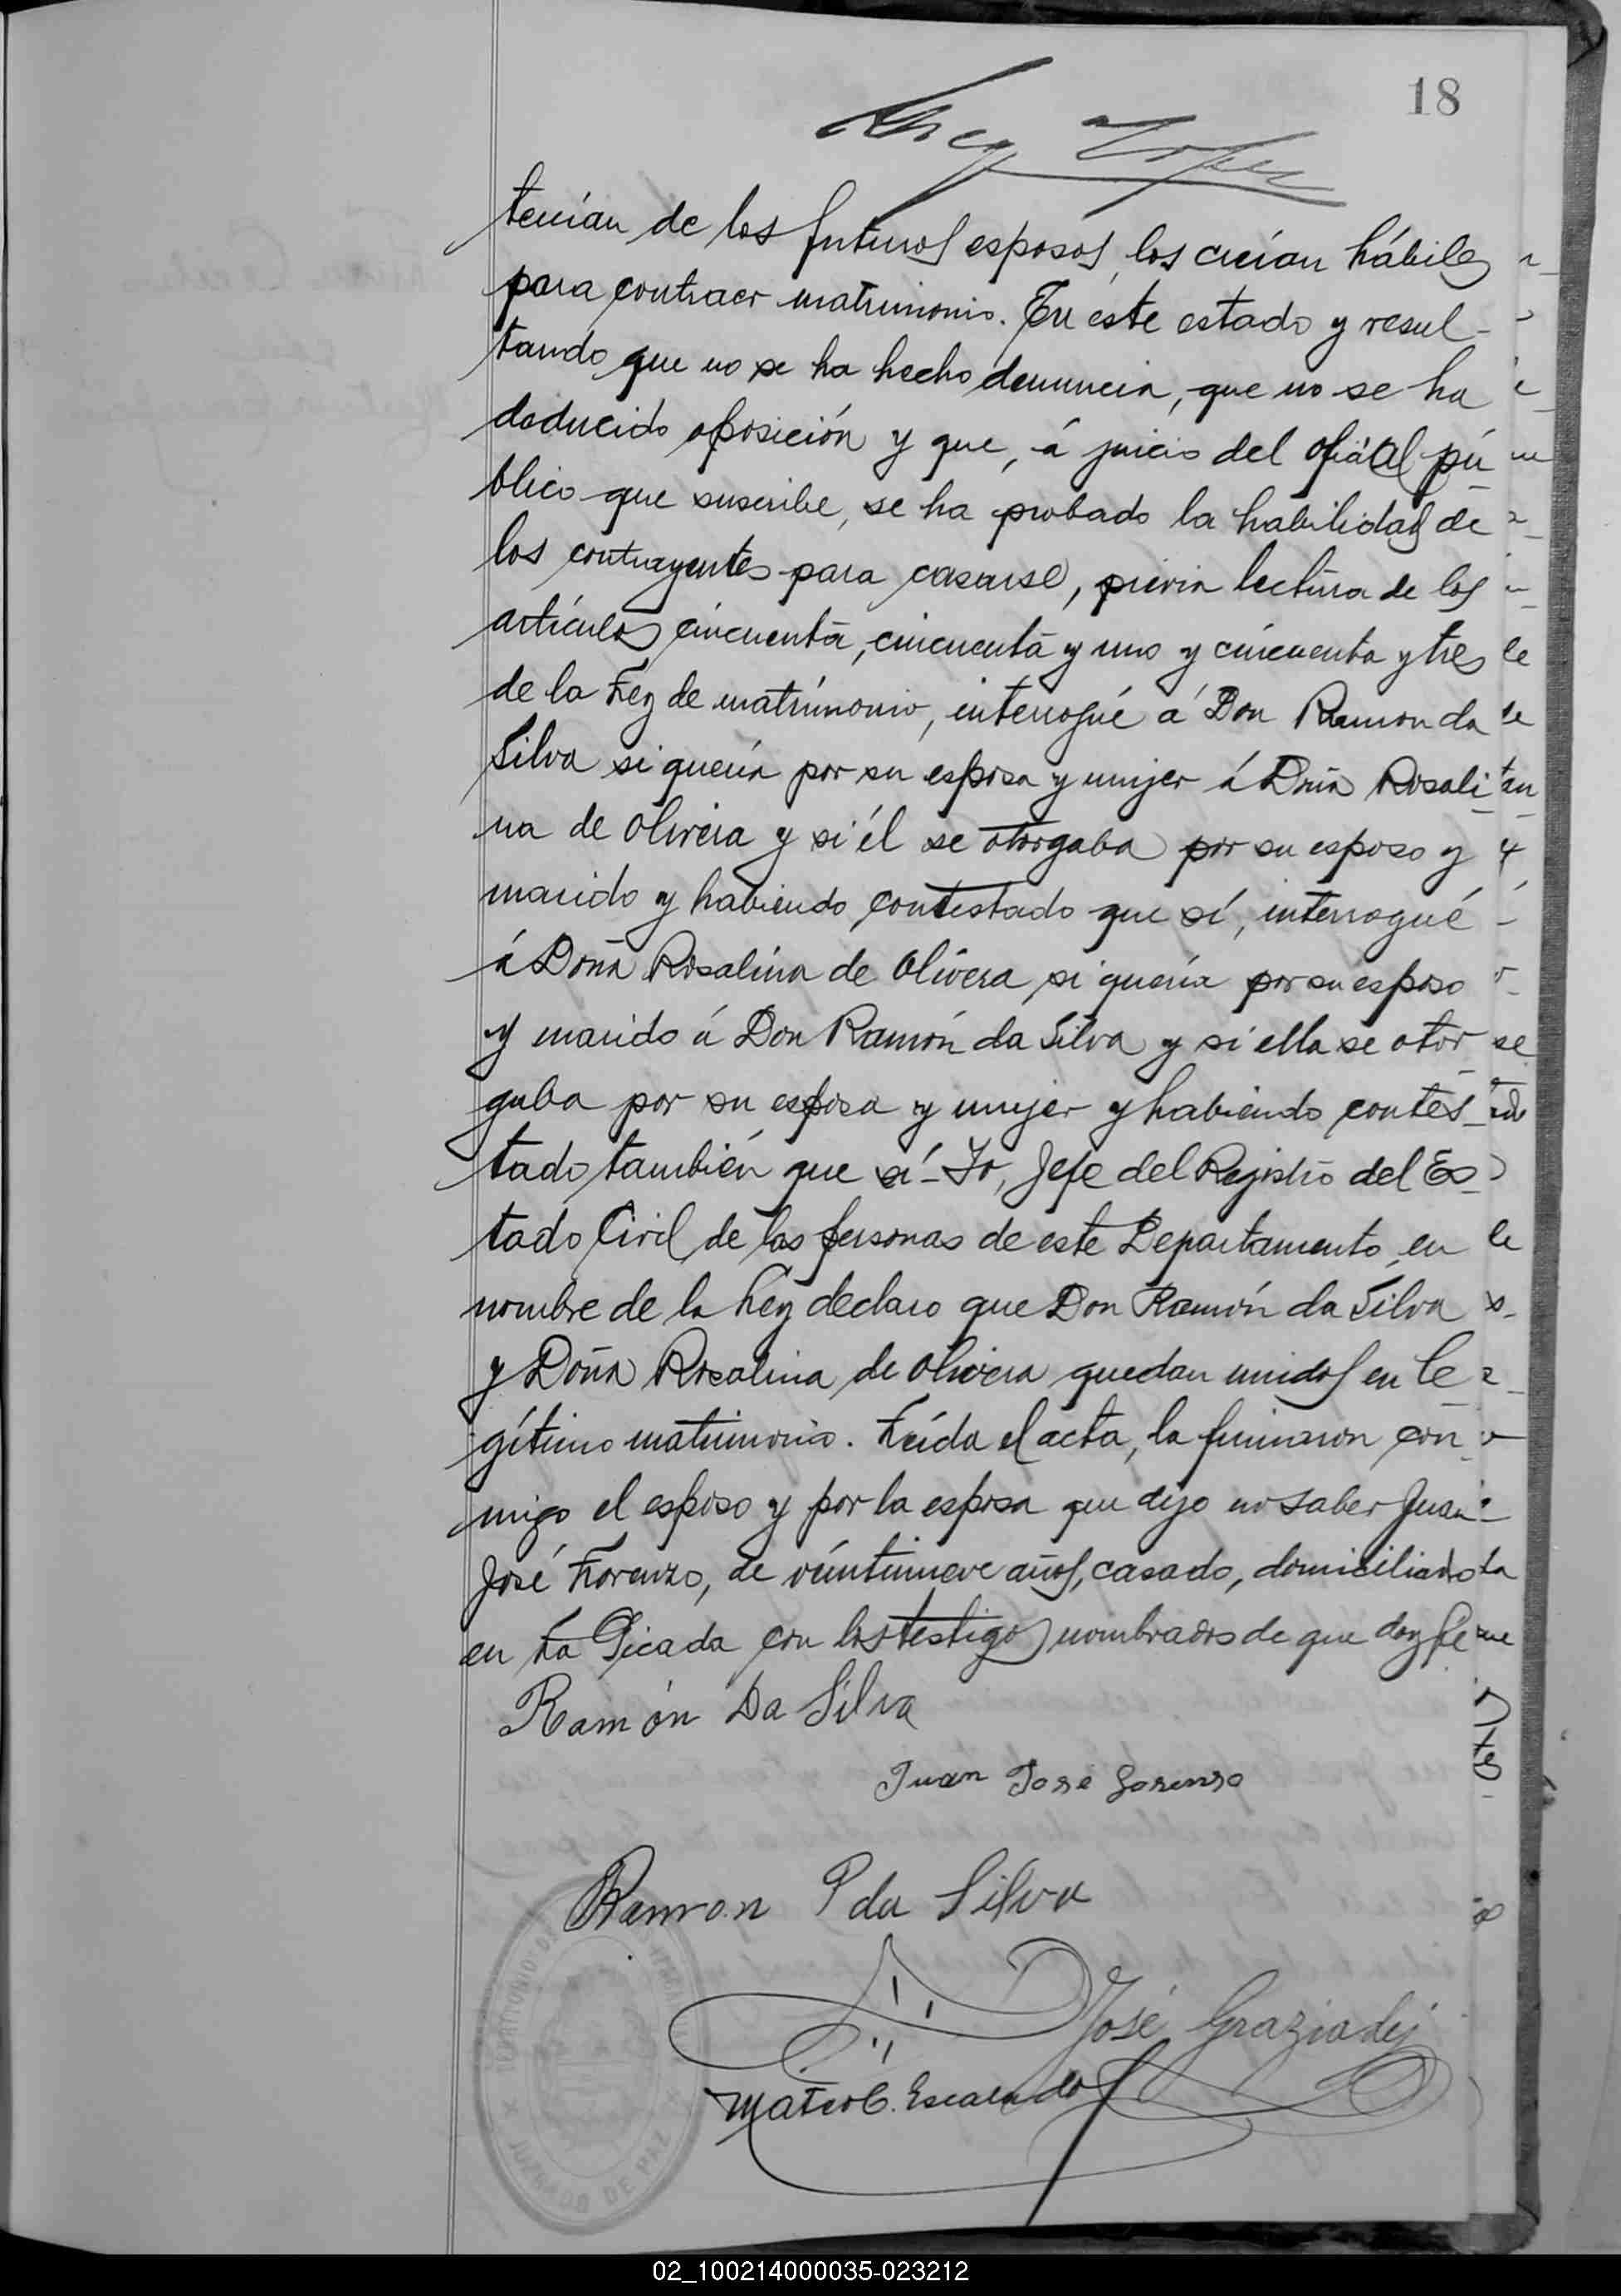 18
Lopez
tenían de los futuros esposos, los creían hábiles
para contraer matrimonio. En este estado y resul-
tando que no se ha hecho denuncia, que no se ha
deducido oposición y que, á juicio del oficial pú-
blico que suscribe, se ha probado la habilidad de
los contrayentes para casarse, previa lectura de los
artículos cincuenta, cincuenta y uno y cincuenta y tres
de la Ley de matrimonio, interrogué á Don Ramon da
Silva si quería por su esposa y mujer á Doña Rosali-
na de Olivera y si él se otorgaba por su esposo y
marido y habiendo contestado que sí, interrogué
á Doña Rosalina de Olivera si quería por su esposo
y marido á Don Ramón da Silva y si ella se otor-
gaba por su esposa y mujer y habiendo contes-
tado también que sí - Yo, Jefe del Registro del Es-
tado Civil de las personas de este Departamento, en
nombre de la Ley declaro que Don Ramón da Silva
y Doña Rosalina de Olivera quedan unidos en le-
gítimo matrimonio. Leída el acta, la firmaron con-
migo el esposo y por la esposa que dijo no saber Juan
José Lorenzo, de veintinueve años, casado, domiciliado
en La Picada con los testigos nombrados de que doy fe
Ramón Da Silva
Juan José Lorenzo
Ramon P da Silva
José Graziadei
Mateo C. Escalada
JUZGADO DE PAZ
02_100214000035-023212